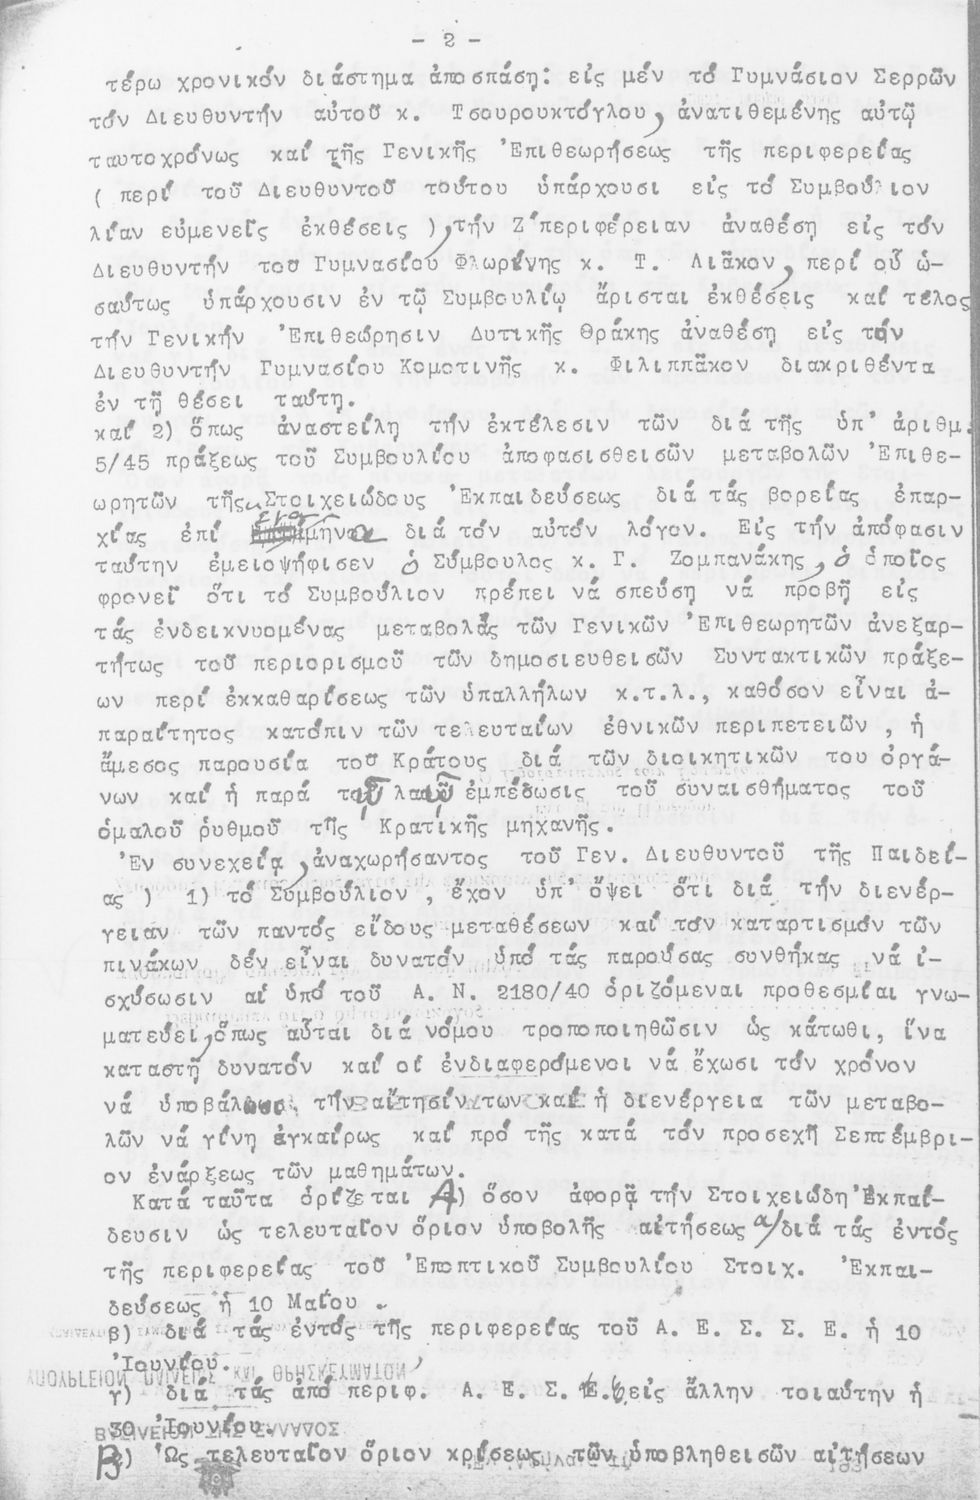 - 2 -
τέρω χρονικόν διάστημα ἀποσπάση: εἰς μέν τό Γυμνάσιον Σερρῶν
τόν Διευθυντήν αὐτοῦ κ. Τσουρουκτόγλου, ἀνατιθεμένης αὐτῷ
ταυτοχρόνως καί τῆς Γενικῆς Ἐπιθεωρήσεως τῆς περιφερείας
( περί τοῦ Διευθυντοῦ τούτου ὑπάρχουσι εἰς τό Συμβούλιον
λίαν εὐμενεῖς ἐκθέσεις ), τήν Ζ΄περιφέρειαν ἀναθέση εἰς τόν
Διευθυντήν του Γυμνασίου Φλωρίνης κ. Τ. Λιᾶκον, περί οὗ ὡ-
σαύτως ὑπάρχουσιν ἐν τῷ Συμβουλίῳ ἄρισται ἐκθέσεις καί τέλος
τήν Γενικήν Ἐπιθεώρησιν Δυτικῆς Θράκης ἀναθέση εἰς τόν
Διευθυντήν Γυμνασίου Κομοτινῆς κ. Φιλιππᾶκον διακριθέντα
ἐν τῇ θέσει ταύτη.
καί 2) ὅπως ἀναστείλη τήν ἐκτέλεσιν τῶν διά τῆς ὑπ' ἀριθμ.
5/45 πράξεως τοῦ Συμβουλίου ἀποφασισθεισῶν μεταβολῶν Ἐπιθε-
ωρητῶν τῆς Στοιχειώδους Ἐκπαιδεύσεως διά τάς βορείας ἐπαρ-
χίας ἐπί ἕνα μῆνα διά τόν αὐτόν λόγον. Εἰς τήν ἀπόφασιν
ταύτην ἐμειοψήφισεν ὁ Σύμβουλος κ. Γ. Ζομπανάκης, ὁ ὁποῖος
φρονεῖ ὅτι τό Συμβούλιον πρέπει νά σπεύση νά προβῇ εἰς
τάς ἐνδεικνυομένας μεταβολάς τῶν Γενικῶν Ἐπιθεωρητῶν ἀνεξαρ-
τήτως τοῦ περιορισμοῦ τῶν δημοσιευθεισῶν Συντακτικῶν πράξε-
ων περί ἐκκαθαρίσεως τῶν ὑπαλλήλων κ.τ.λ., καθόσον εἶναι ἀ-
παραίτητος κατόπιν τῶν τελευταίων ἐθνικῶν περιπετειῶν, ἡ
ἄμεσος παρουσία τοῦ Κράτους διά τῶν διοικητικῶν του ὀργά-
νων καί ἡ παρά τῷ λαῷ ἐμπέδωσις τοῦ συναισθήματος τοῦ
ὁμαλοῦ ῥυθμοῦ τῆς Κρατικῆς μηχανῆς.
Ἐν συνεχείᾳ, ἀναχωρήσαντος τοῦ Γεν. Διευθυντοῦ τῆς Παιδεί-
ας ) 1) τό Συμβούλιον, ἔχον ὑπ' ὄψει ὅτι διά τήν διενέρ-
γειαν τῶν παντός εἴδους μεταθέσεων καί τόν καταρτισμόν τῶν
πινάκων δέν εἶναι δυνατόν ὑπό τάς παρούσας συνθήκας νά ἰ-
σχύσωσιν αἱ ὑπό τοῦ Α. Ν. 2180/40 ὁριζόμεναι προθεσμίαι γνω-
ματεύει, ὅπως αὗται διά νόμου τροποποιηθῶσιν ὡς κάτωθι, ἵνα
καταστῇ δυνατόν καί οἱ ἐνδιαφερόμενοι νά ἔχωσι τόν χρόνον
νά ὑποβάλωσι τήν αἴτησίν των καί ἡ διενέργεια τῶν μεταβο-
λῶν νά γίνη ἐγκαίρως καί πρό τῆς κατά τόν προσεχῆ Σεπτέμβρι-
ον ἐνάρξεως τῶν μαθημάτων.
Κατά ταῦτα ὁρίζεται Α) ὅσον ἀφορᾷ τήν Στοιχειώδη Ἐκπαί-
δευσιν ὡς τελευταῖον ὅριον ὑποβολῆς αἰτήσεως α/ διά τάς ἐντός
τῆς περιφερείας τοῦ Ἐποπτικοῦ Συμβουλίου Στοιχ. Ἐκπαι-
δεύσεως ἡ 10 Μαΐου.
β) διά τάς ἐντός τῆς περιφερείας τοῦ Α. Ε. Σ. Σ. Ε. ἡ 10
Ἰουνίου.
γ) διά τάς ἀπό περιφ. Α. Ε. Σ. Ε. εἰς ἄλλην τοιαύτην ἡ
30 Ἰουνίου.
Β) Ὡς τελευταῖον ὅριον κρίσεως τῶν ὑποβληθεισῶν αἰτήσεων